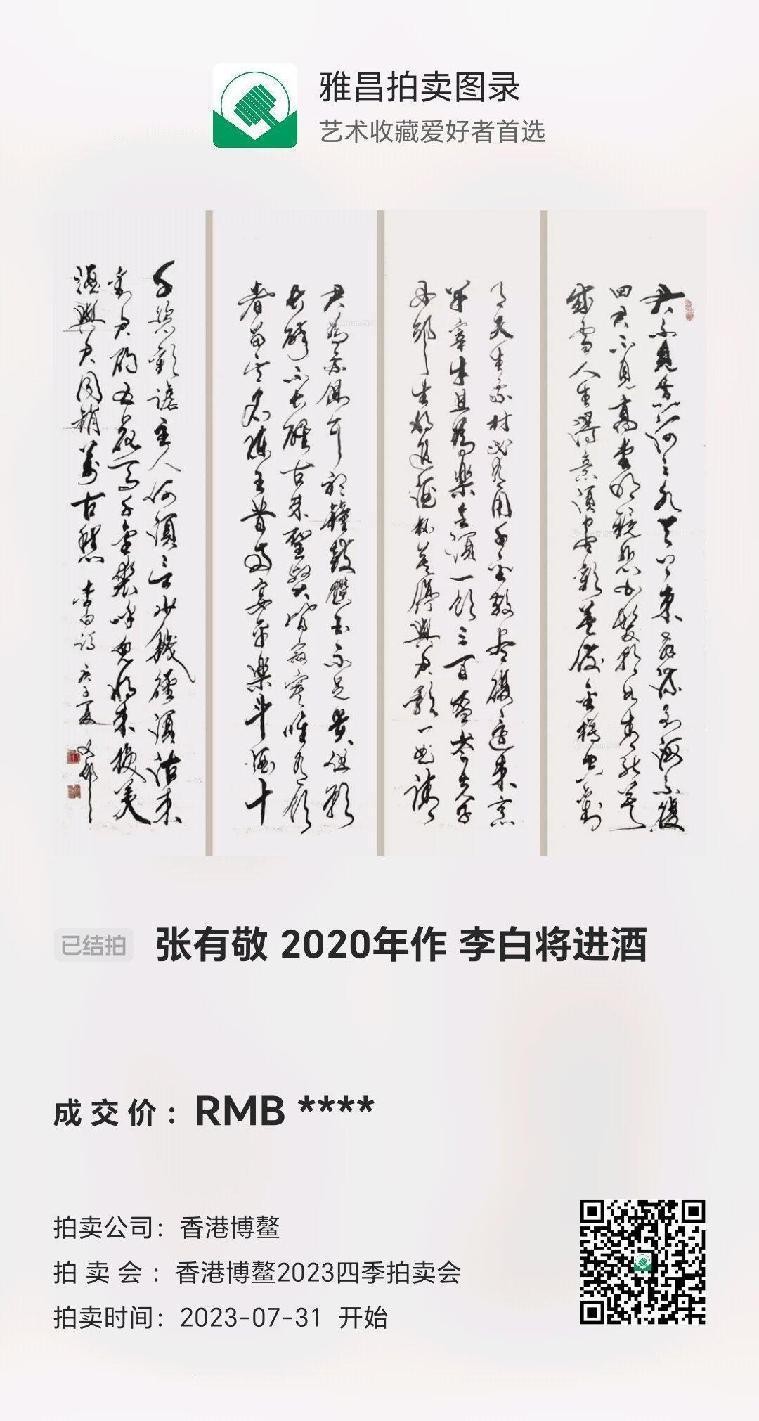 雅昌拍卖图录
艺术收藏爱好者首选
君不見黄河之水天上来奔流到海不復
回君不見高堂明镜悲白髮朝如青丝暮
成雪人生得意须尽歡莫使金樽空對
月天生我材必有用千金散尽還来烹
羊宰牛且為樂会须一饮三百杯岑夫子
丹邱生将進酒杯莫停與君歌一曲請
君為我傾耳 鐘鼓饌玉不足貴但願
长醉不长醒古来聖賢皆寂寞惟有饮
者留其名陳王昔时宴平樂斗酒十
千恣歡謔主人何須言少錢徑須沽
对君酌五花馬千金裘呼兒将出換美
酒與君同銷萬古愁 李白詩 庚子夏
已结拍 张有敬 2020年作 李白将进酒
成交价：RMB ****
拍卖公司：香港博鳌
拍卖会：香港博鳌2023四季拍卖会
拍卖时间：2023-07-31 开始